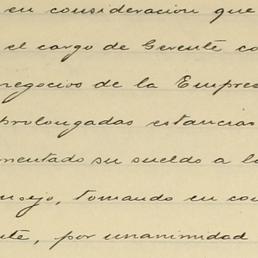 en consideracion que
el cargo de Gerente co
negocios de la Empres
prolongadas estancias
mentado su sueldo a la
nsejo, tomando en con
nte, por unanimidad